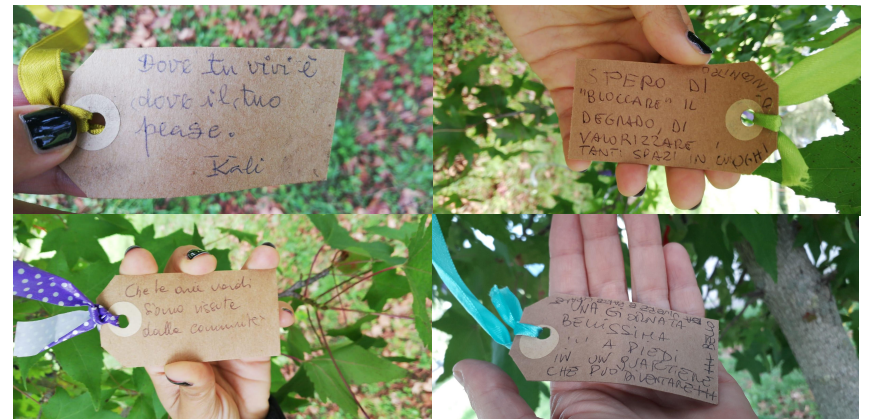 Dove tu vivi è
dove il tuo
pease.
Kali
SPERO DI
"BLOCCARE" IL
DEGRADO, DI
VALORIZZARE I
TANTI SPAZI IN LUOGHI
D'INCONTRO
Che le aree verdi
siano vissute
dalla comunità
UNA GIORNATA
BELLISSIMA
... A PIEDI
IN UN QUARTIERE
CHE PUÒ DIVENTARE